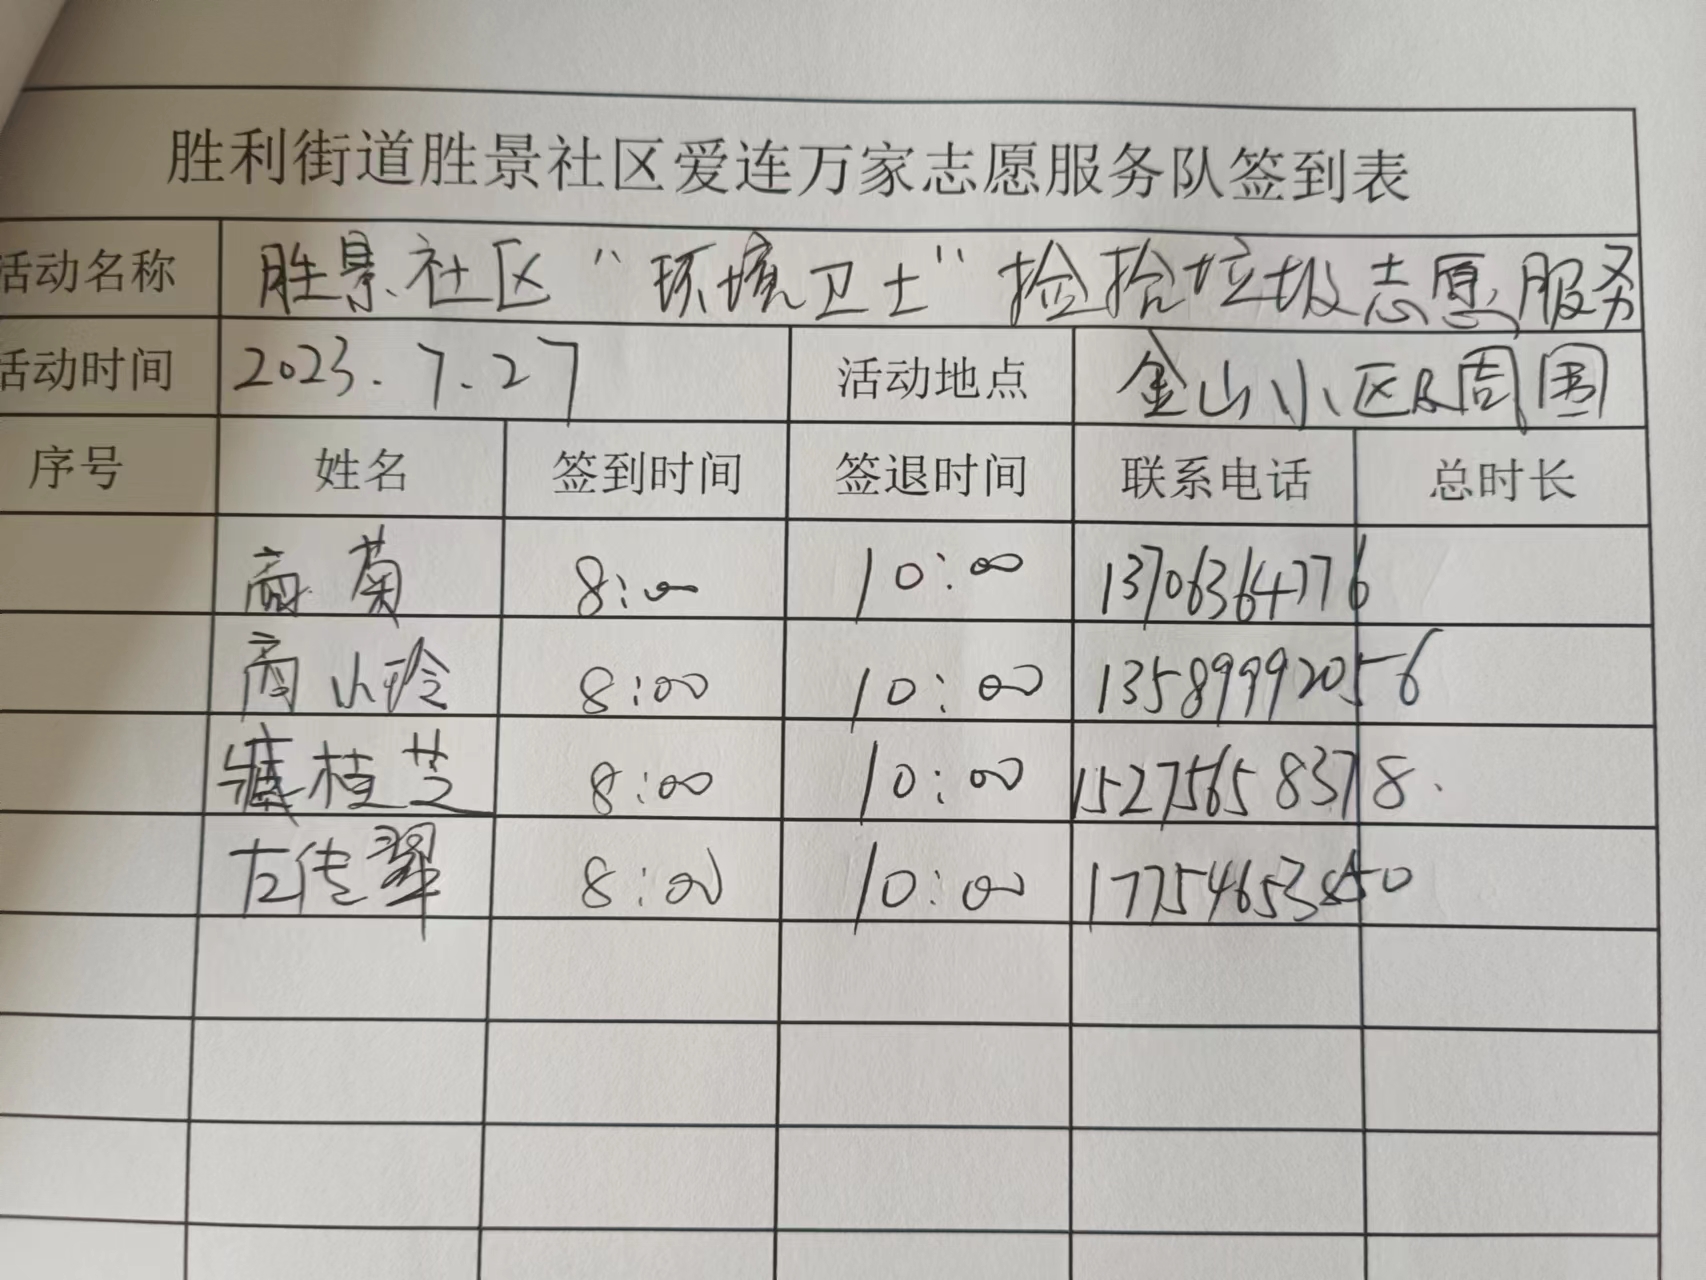 胜利街道胜景社区爱连万家志愿服务队签到表
活动名称 胜景社区“环境卫士”捡拾垃圾志愿服务
活动时间 2023.7.27 活动地点 金山小区及周围
序号 姓名 签到时间 签退时间 联系电话 总时长
商菊 8:00 10:00 13706364776
商小玲 8:00 10:00 13589992056
桂芝 8:00 10:00 15275658378.
左传翠 8:00 10:00